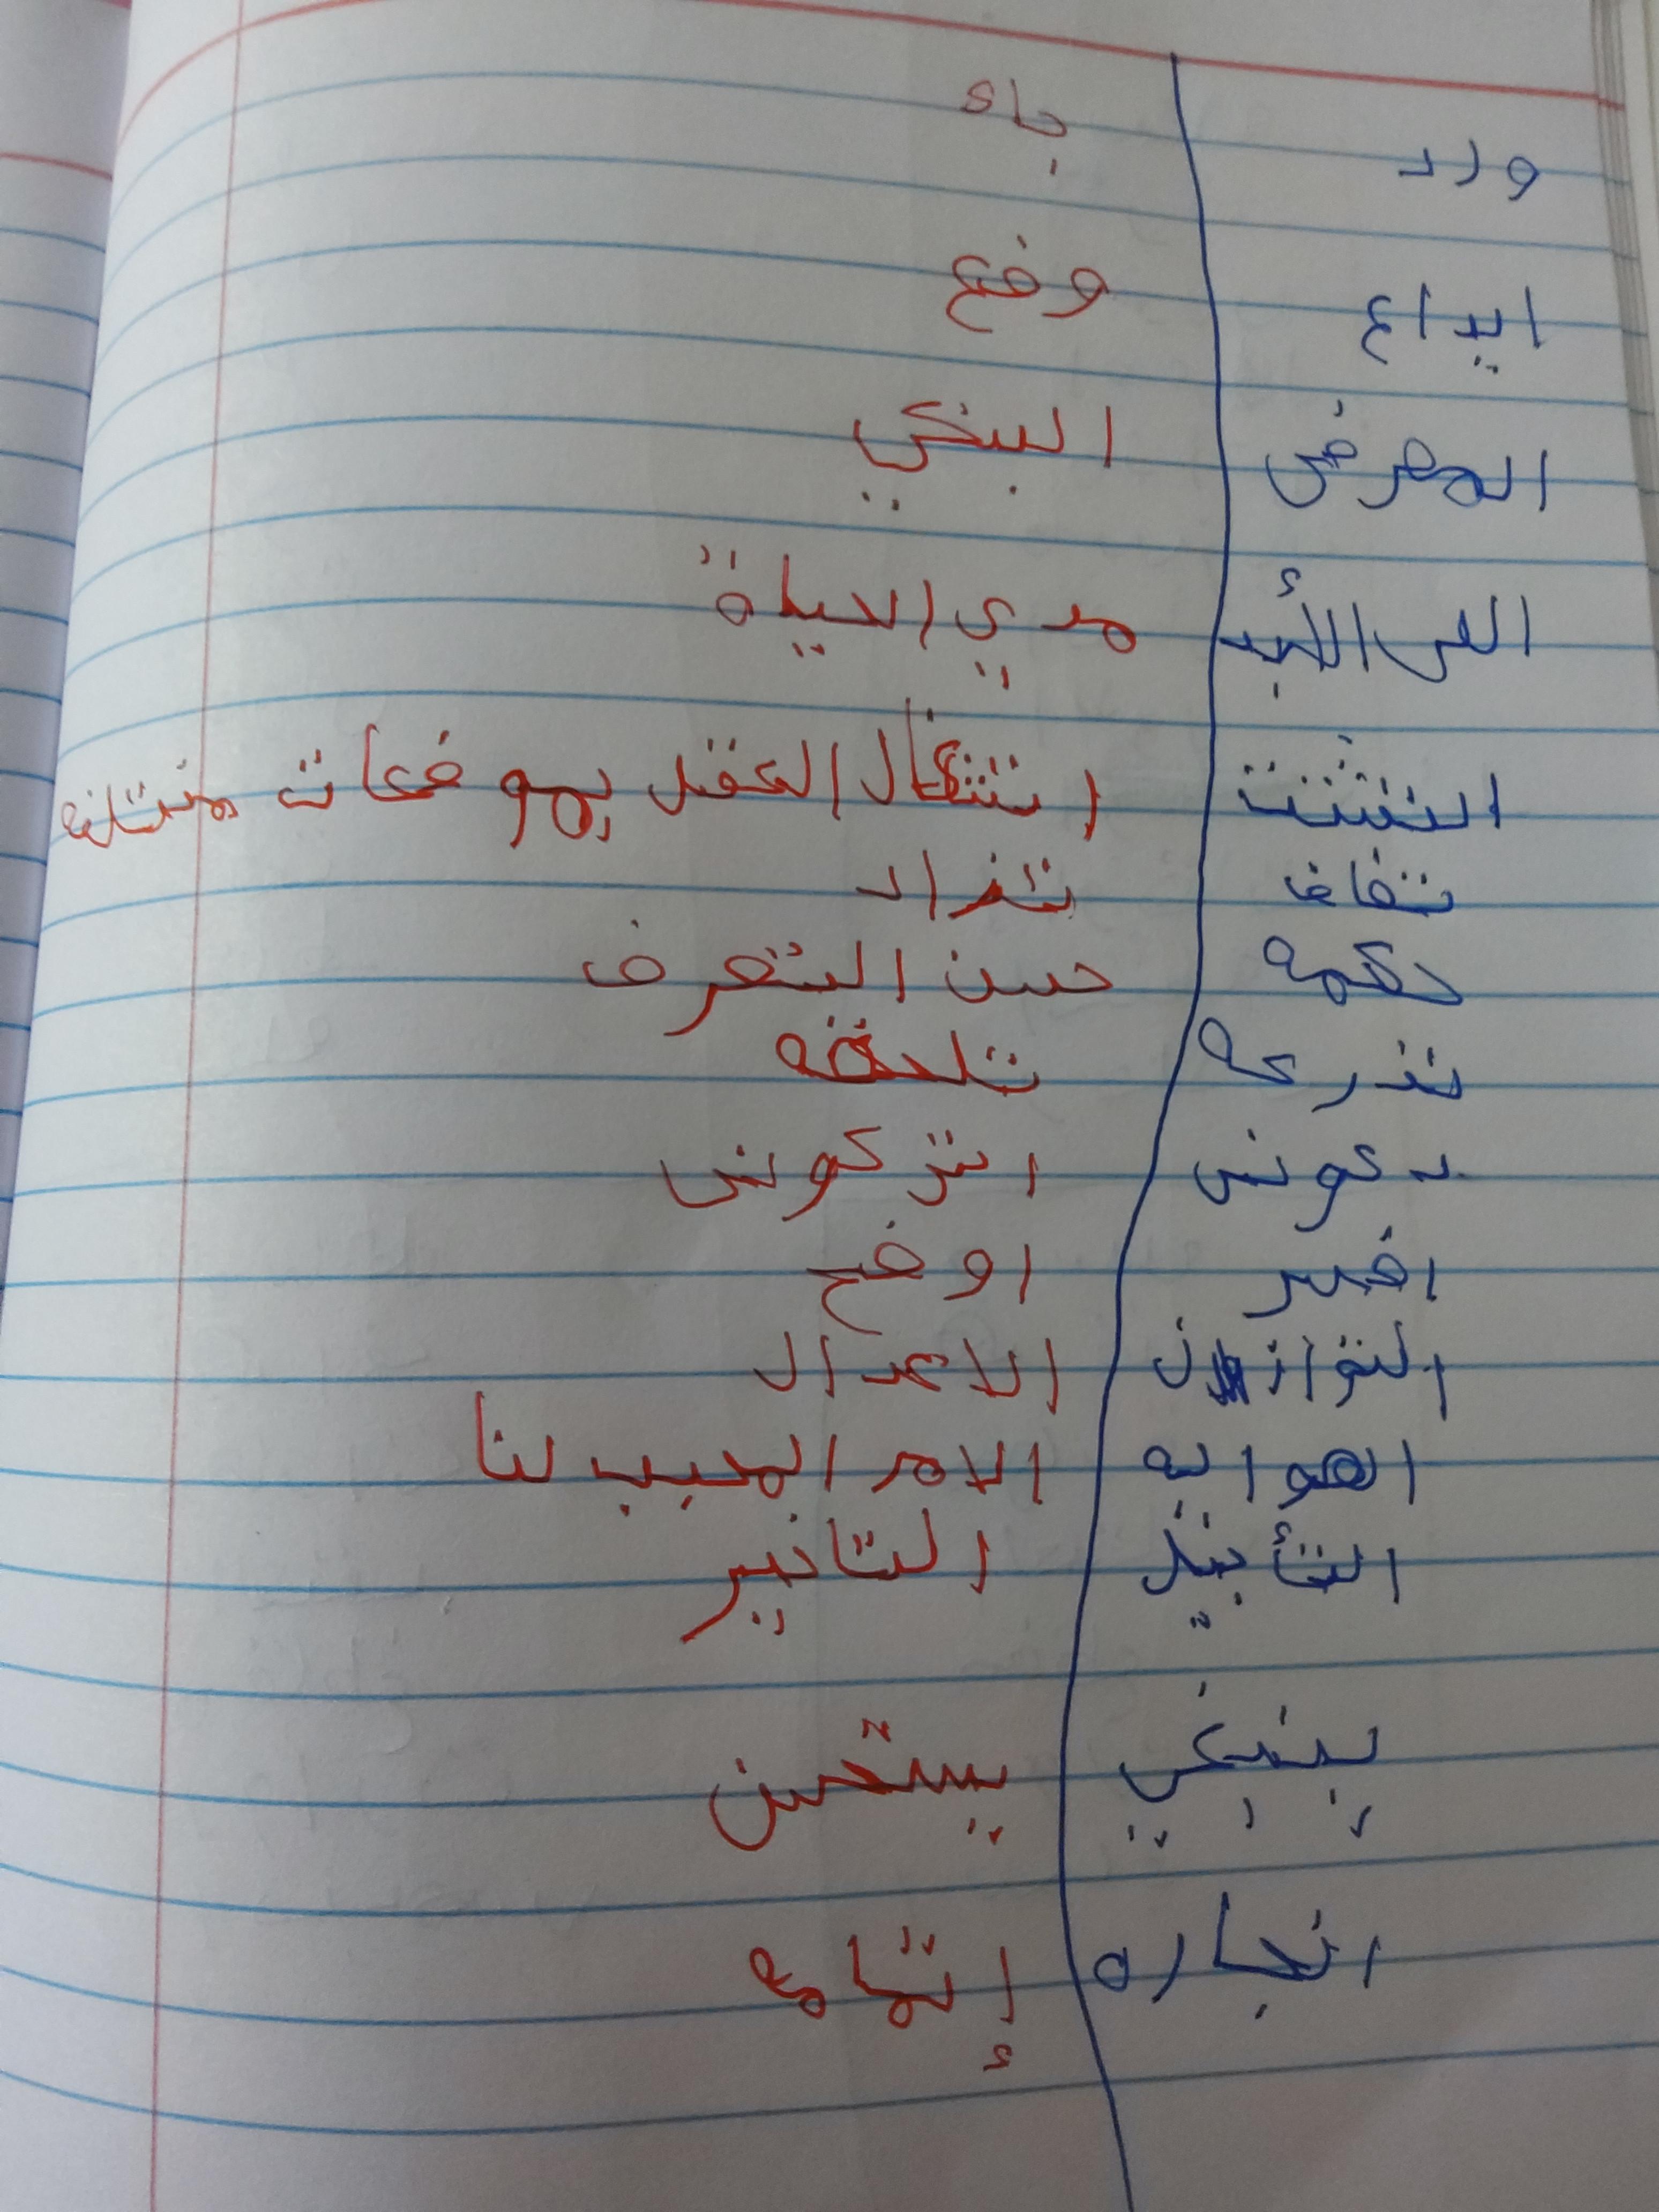 ورد جاء
ايداع وضع
المصرفي البنكي
الى الأبد مدي الحياة
التشتت انتقال العقل بموضعات
تخاف تنزاد
حكمه حسن التصرف
تدرعه تلحقه
دعوني اتركوني
افسر اوضح
التوازن الاعدال
الهوايه الامر المحبب لنا
التأجيل التاخير
ينبغي يستحسن
انجازه إتمامه